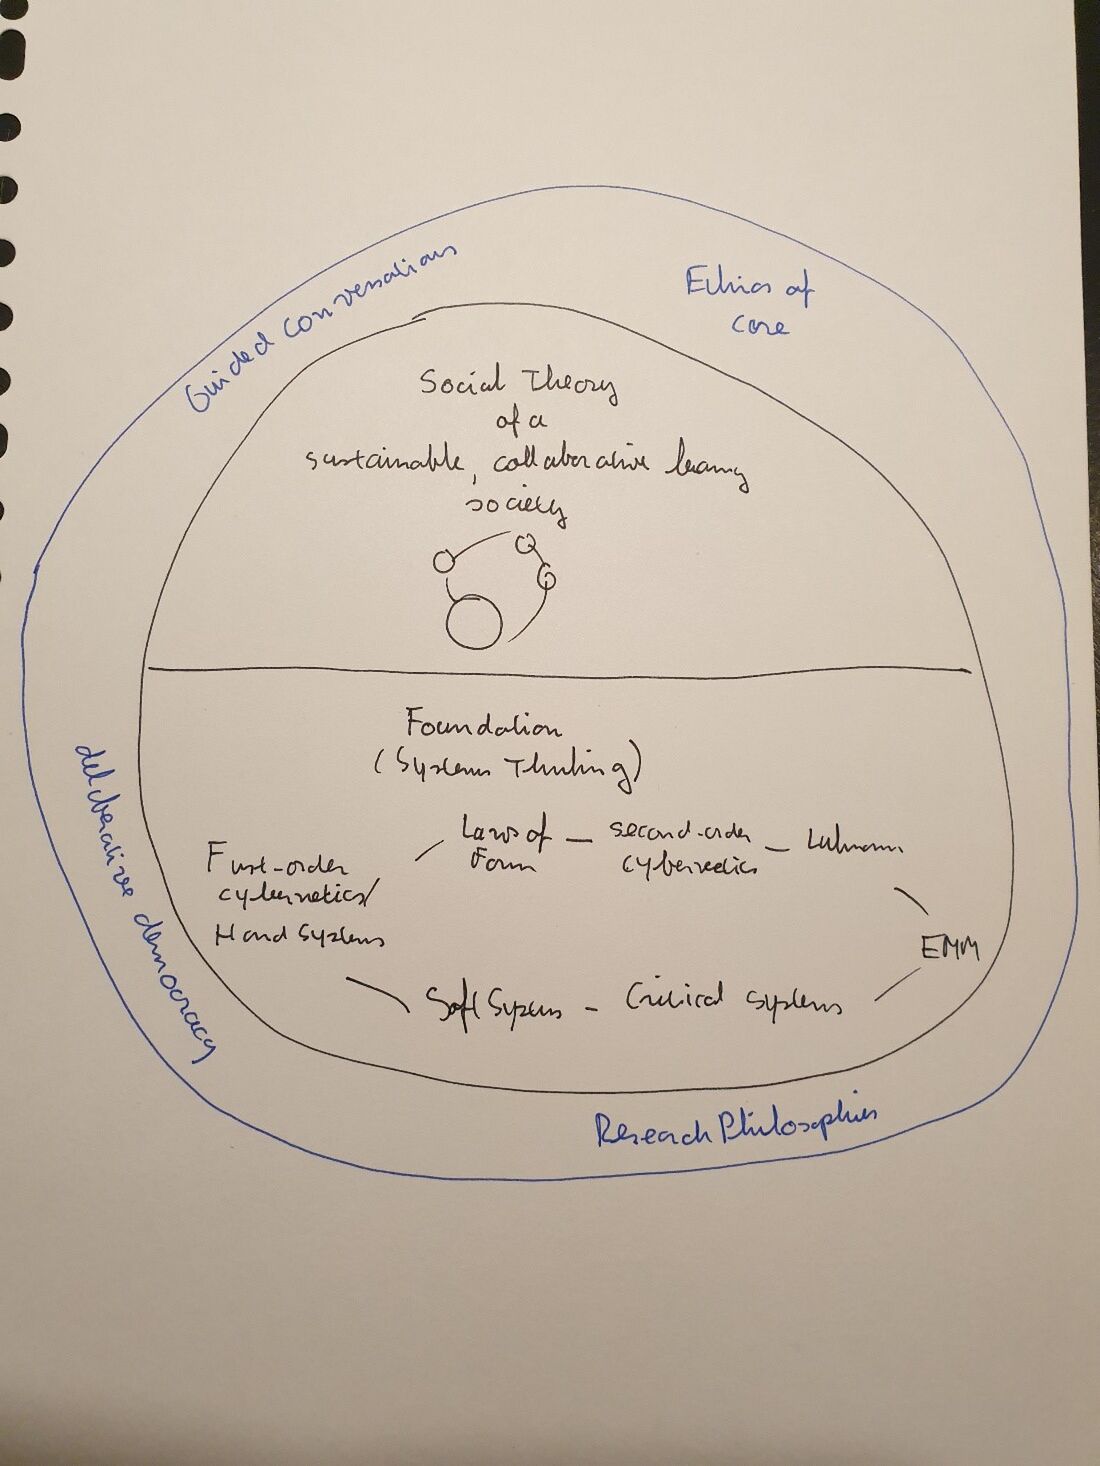 Guided conversations
Ethics of
care
Social Theory
of a
sustainable, collaborative learning
society
Foundation
(Systems Thinking)
First-order
cybernetics/
Hard Systems
Laws of
Form
second-order
cybernetics
Luhmann
EMM
Soft Systems - Critical Systems
deliberative democracy
Research Philosophies